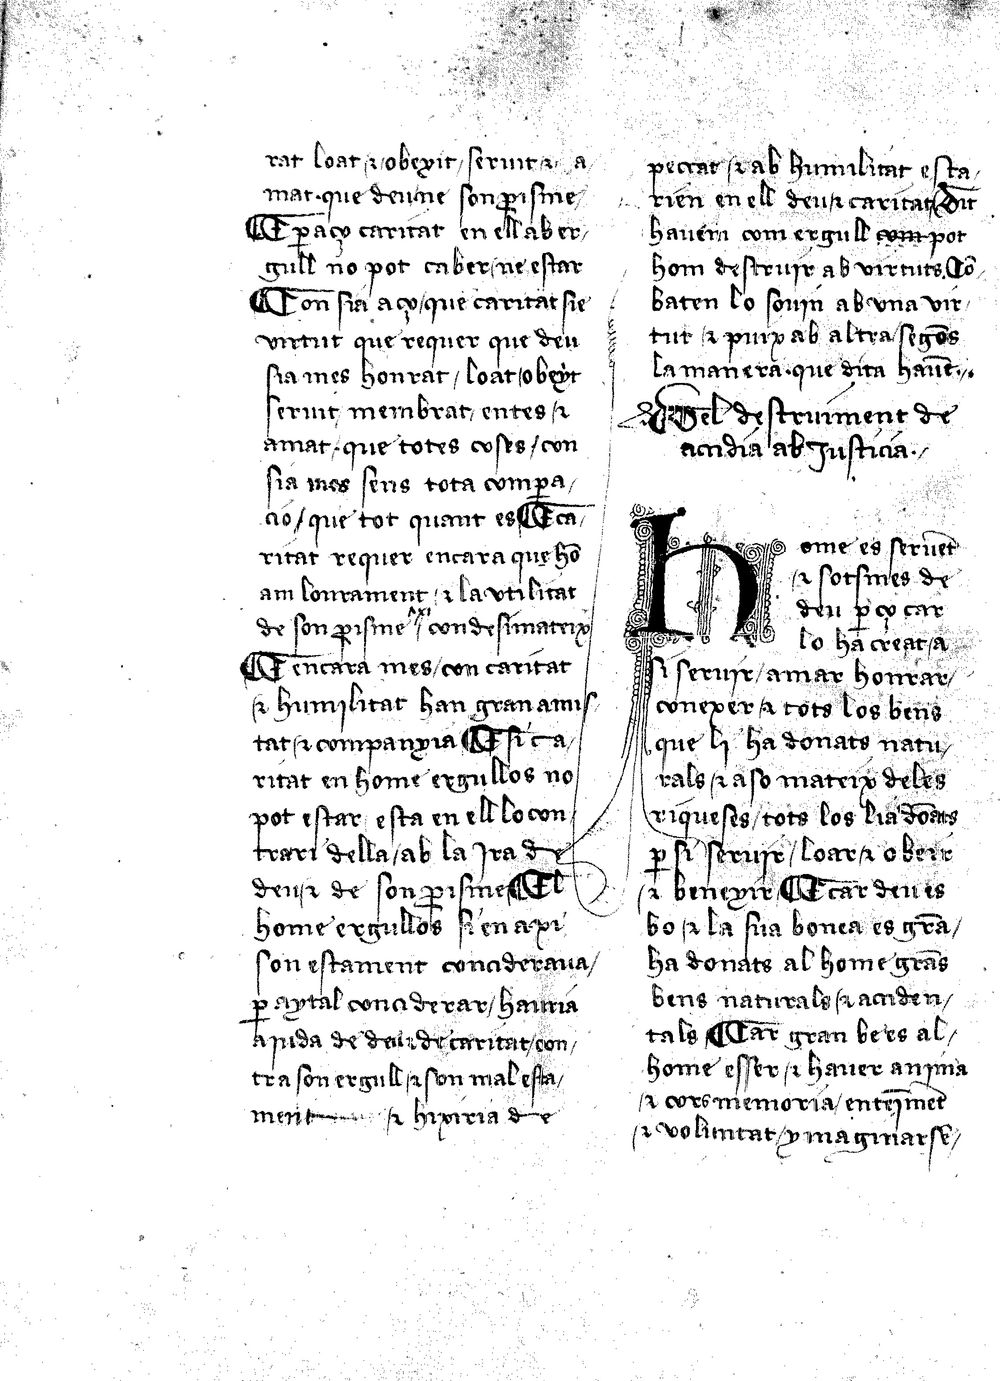 rat loat / ⁊ / obeyit / seruit ⁊ / a/
mat · que deu ne son ꝑisme /
¶ E ꝑ aço caritat en ell ab er/
gull no pot caber / ne estar
¶ Con sia aço / que caritat sie
virtut que requer que deu
sia mes honrat / loat / obeyt
seruit / membrat / entes / ⁊
amat · que totes coses / con
sia mes sens tota compa/
cio / que tot quant es ¶ E ca/
ritat requer encara que hō
am lonrament / ⁊ la vtilitat
de son ꝑisme axi con de si mateix
¶ E encara mes / con caritat
⁊ humilitat han gran amis/
tat / ⁊ companyia ¶ E si ca/
ritat en home ergullos no
pot estar / esta en ell lo con/
trari della / ab la Ira de
deu / ⁊ de son ꝑisme ¶ E l
home ergullos si en axi
son estament conciderava /
ꝑ aytal conciderar / hauria
aiuda de deu / ⁊ de caritat / con/
tra son ergull / ⁊ son mal esta/
ment ⁊ hixiria de
peccat / ⁊ ab humilitat esta/
rien en ell deu ⁊ caritat / Dit
hauem com ergull com pot
hom destruir ab virtuts. Cō/
baten lo souin ab vna vir/
tut / ⁊ puix ab altra / segōs
la manera · que dita hauē · /.
Del destruiment de
accidia ab Iusticia · /
home es seruēt
⁊ sotsmes de
deu ꝑ ço car
lo ha creat / a
si seruir / amar honrar /
conexer / ⁊ tots los bens
que li ha donats natu/
rals / ⁊ a so mateix de les
riqueses / tots los lia dōats
ꝑ si seruir / loar / ⁊ obeir
⁊ beneyir ¶ E car deu es
bo / ⁊ la sua bonea es grā /
ha donats al home grās
bens naturals / ⁊ acciden/
tals ¶ Car gran be es al /
home esser / ⁊ hauer anima
⁊ cors memoria / enteīmēt
⁊ voluntat / ymaginar sē /